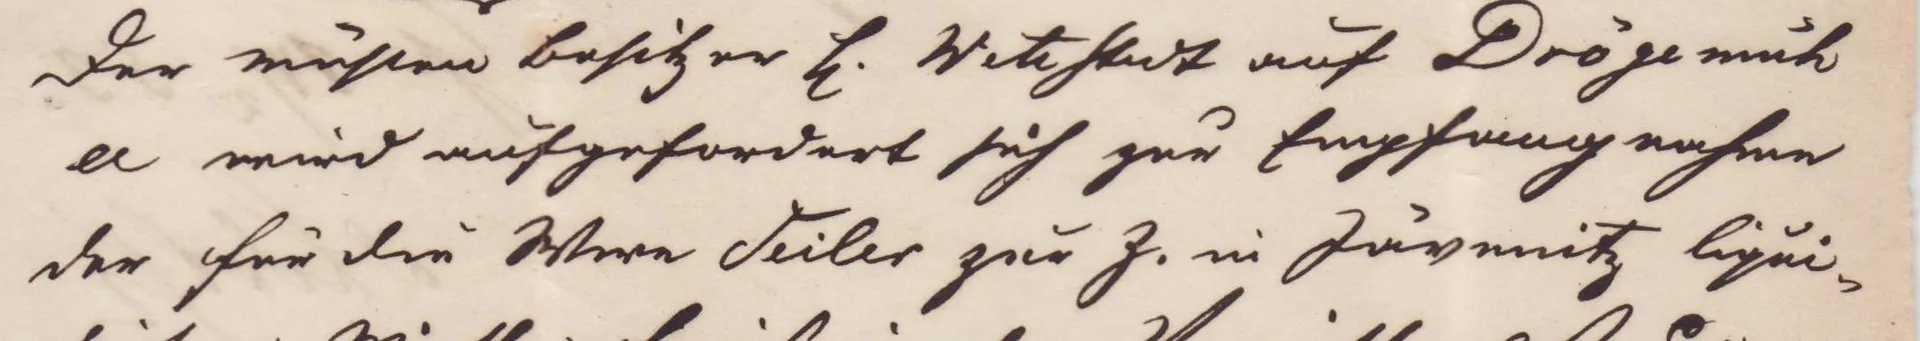 Der Mühlen besitzer H. Wettstedt auf Drögemüh
le wird aufgefordert sich zur Empfangnahme
der für die Wwe Seiler zur Z. in Jävenitz liqui-